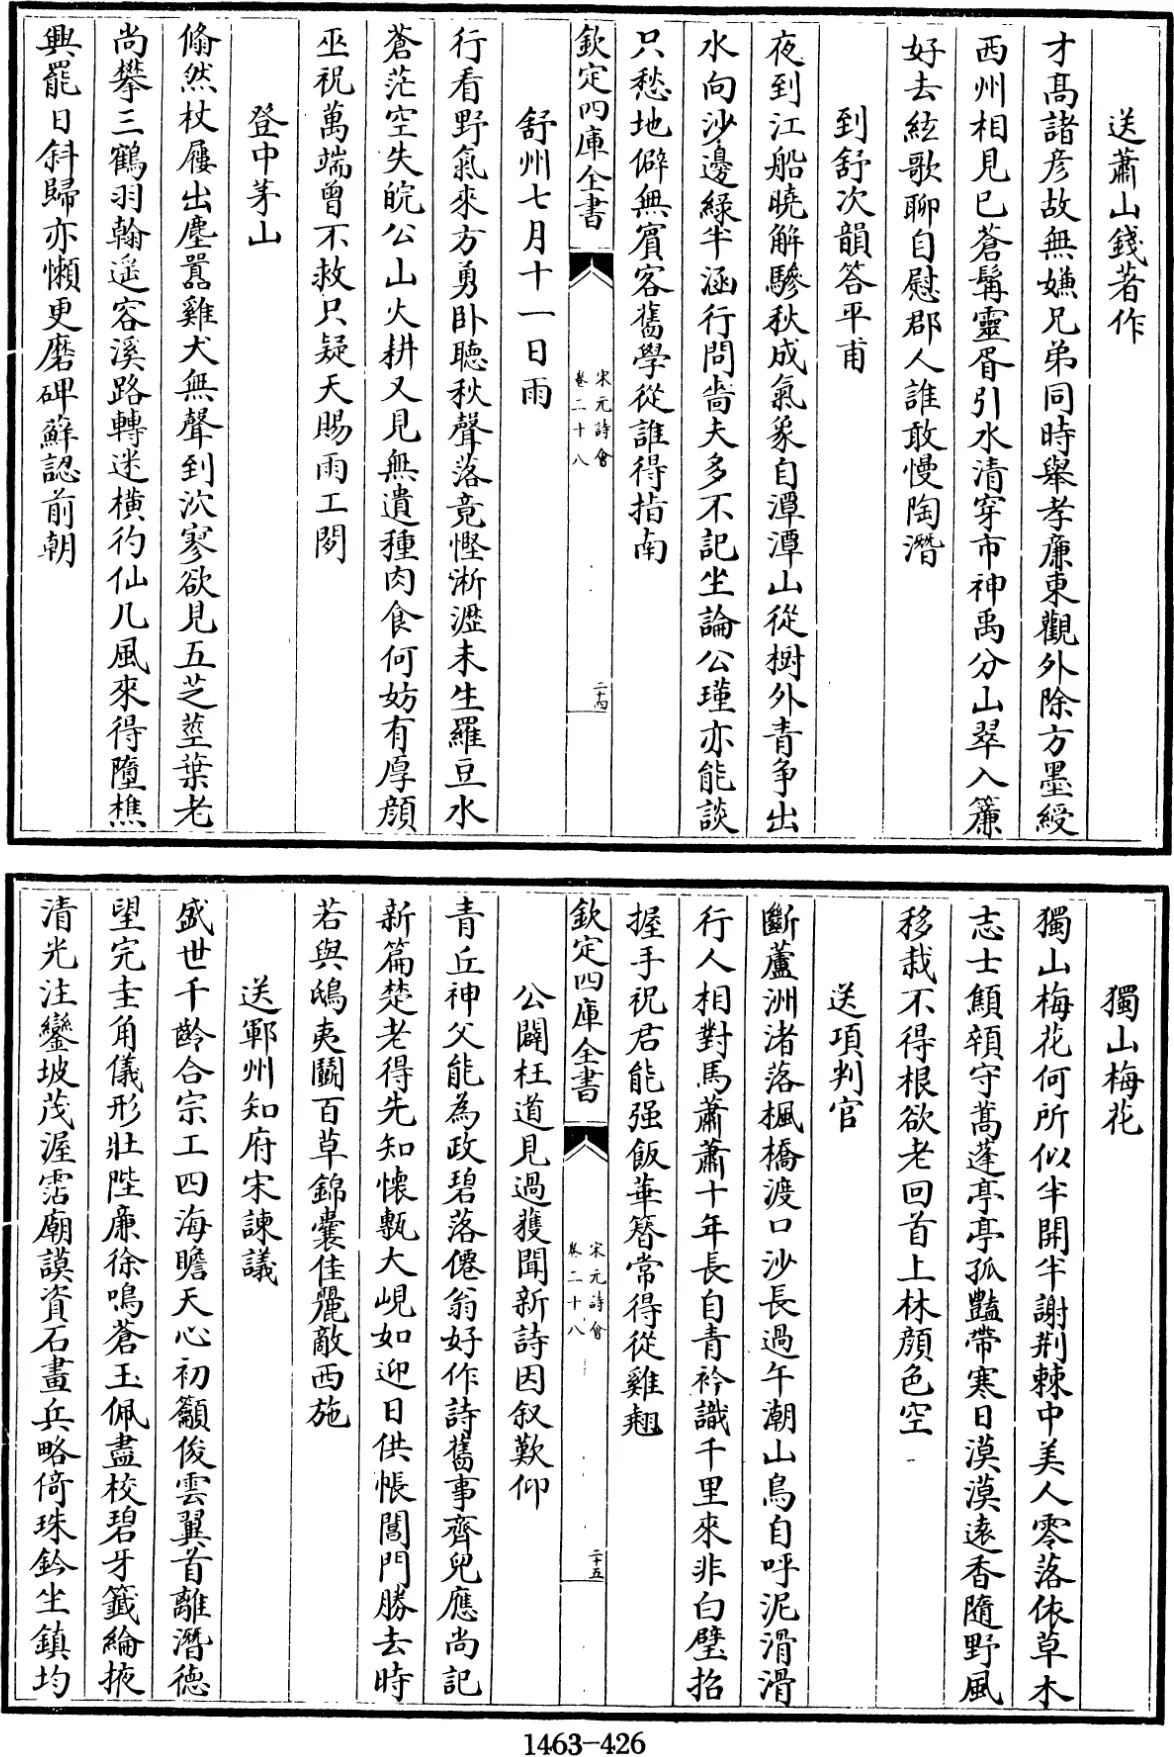 送蕭山錢著作
才髙諸彦故無嫌兄弟同時舉孝廉東觀外除方墨綬
西州相見已蒼髯靈胥引水清穿市神禹分山翠入簾
好去絃歌聊自慰郡人誰敢慢陶潛
到舒次韻答平甫
夜到江船曉解驂秋成氣象自潭潭山從樹外青争出
水向沙邊緑半涵行問嗇夫多不記坐論公瑾亦能談
只愁地僻無賓客舊學從誰得指南
欽定四庫全書
宋元詩會
卷二十八
二十四
舒州七月十一日雨
行看野氣來方勇卧聽秋聲落竟慳淅瀝未生羅豆水
蒼茫空失皖公山火耕又見無遺種肉食何妨有厚顔
巫祝萬端曾不救只疑天賜雨工閒
登中茅山
翛然杖屨出塵囂雞犬無聲到泬寥欲見五芝莖葉老
尚攀三鶴羽翰遥容溪路轉迷横彴仙几風來得墮樵
興罷日斜歸亦懶更磨碑蘚認前朝
獨山梅花
獨山梅花何所似半開半謝荆棘中美人零落依草木
志士顦顇守蒿蓬亭亭孤豔帶寒日漠漠逺香隨野風
移栽不得根欲老回首上林顔色空
送項判官
斷蘆洲渚落楓橋渡口沙長過午潮山鳥自呼泥滑滑
行人相對馬蕭蕭十年長自青衿識千里來非白璧招
握手祝君能强飯華簪常得從雞翹
欽定四庫全書
宋元詩會
卷二十八
二十五
公闢枉道見過獲聞新詩因叙歎仰
青丘神父能為政碧落僊翁好作詩舊事齊兒應尚記
新篇楚老得先知懷甎大峴如迎日供帳閶門勝去時
若與鴟夷鬬百草錦囊佳麗敵西施
送鄆州知府宋諫議
盛世千齡合宗工四海瞻天心初籲俊雲翼首離潛德
望完圭角儀形壯陛廉徐鳴蒼玉佩盡校碧牙籤綸掖
清光注鑾坡茂渥霑廟謨資石畫兵略倚珠鈐坐鎮均
1463-426